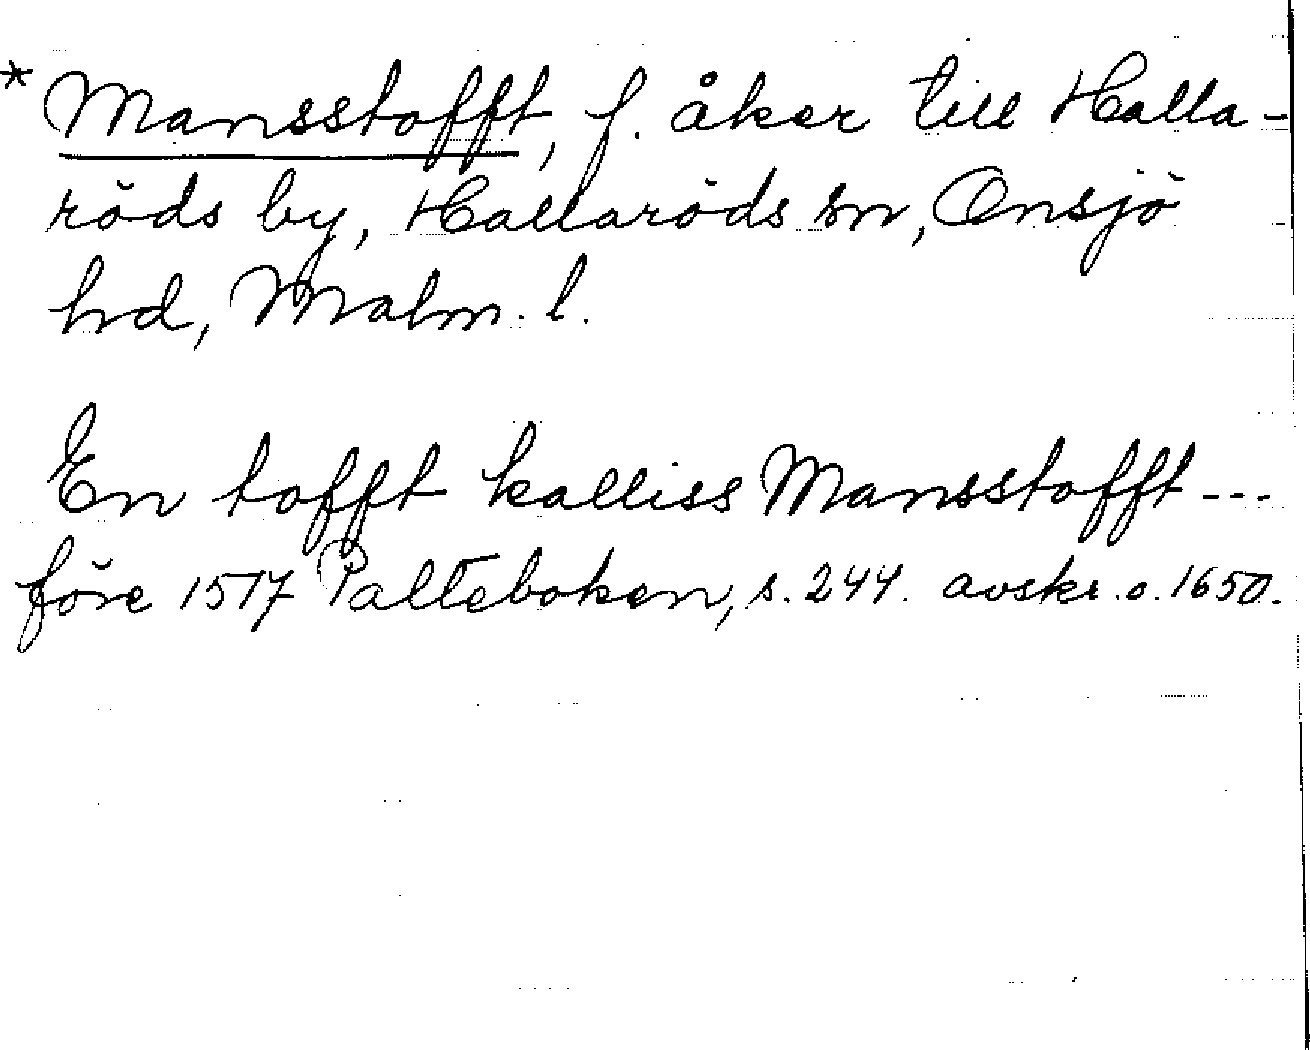 * Mansstofft, f. åker till Halla-
röds by, Hallaröds sn, Onsjö
hd, Malm. l.
En tofft kalliss Mansstofft ---
före 1517 Palteboken, s. 244. avskr. o. 1650.